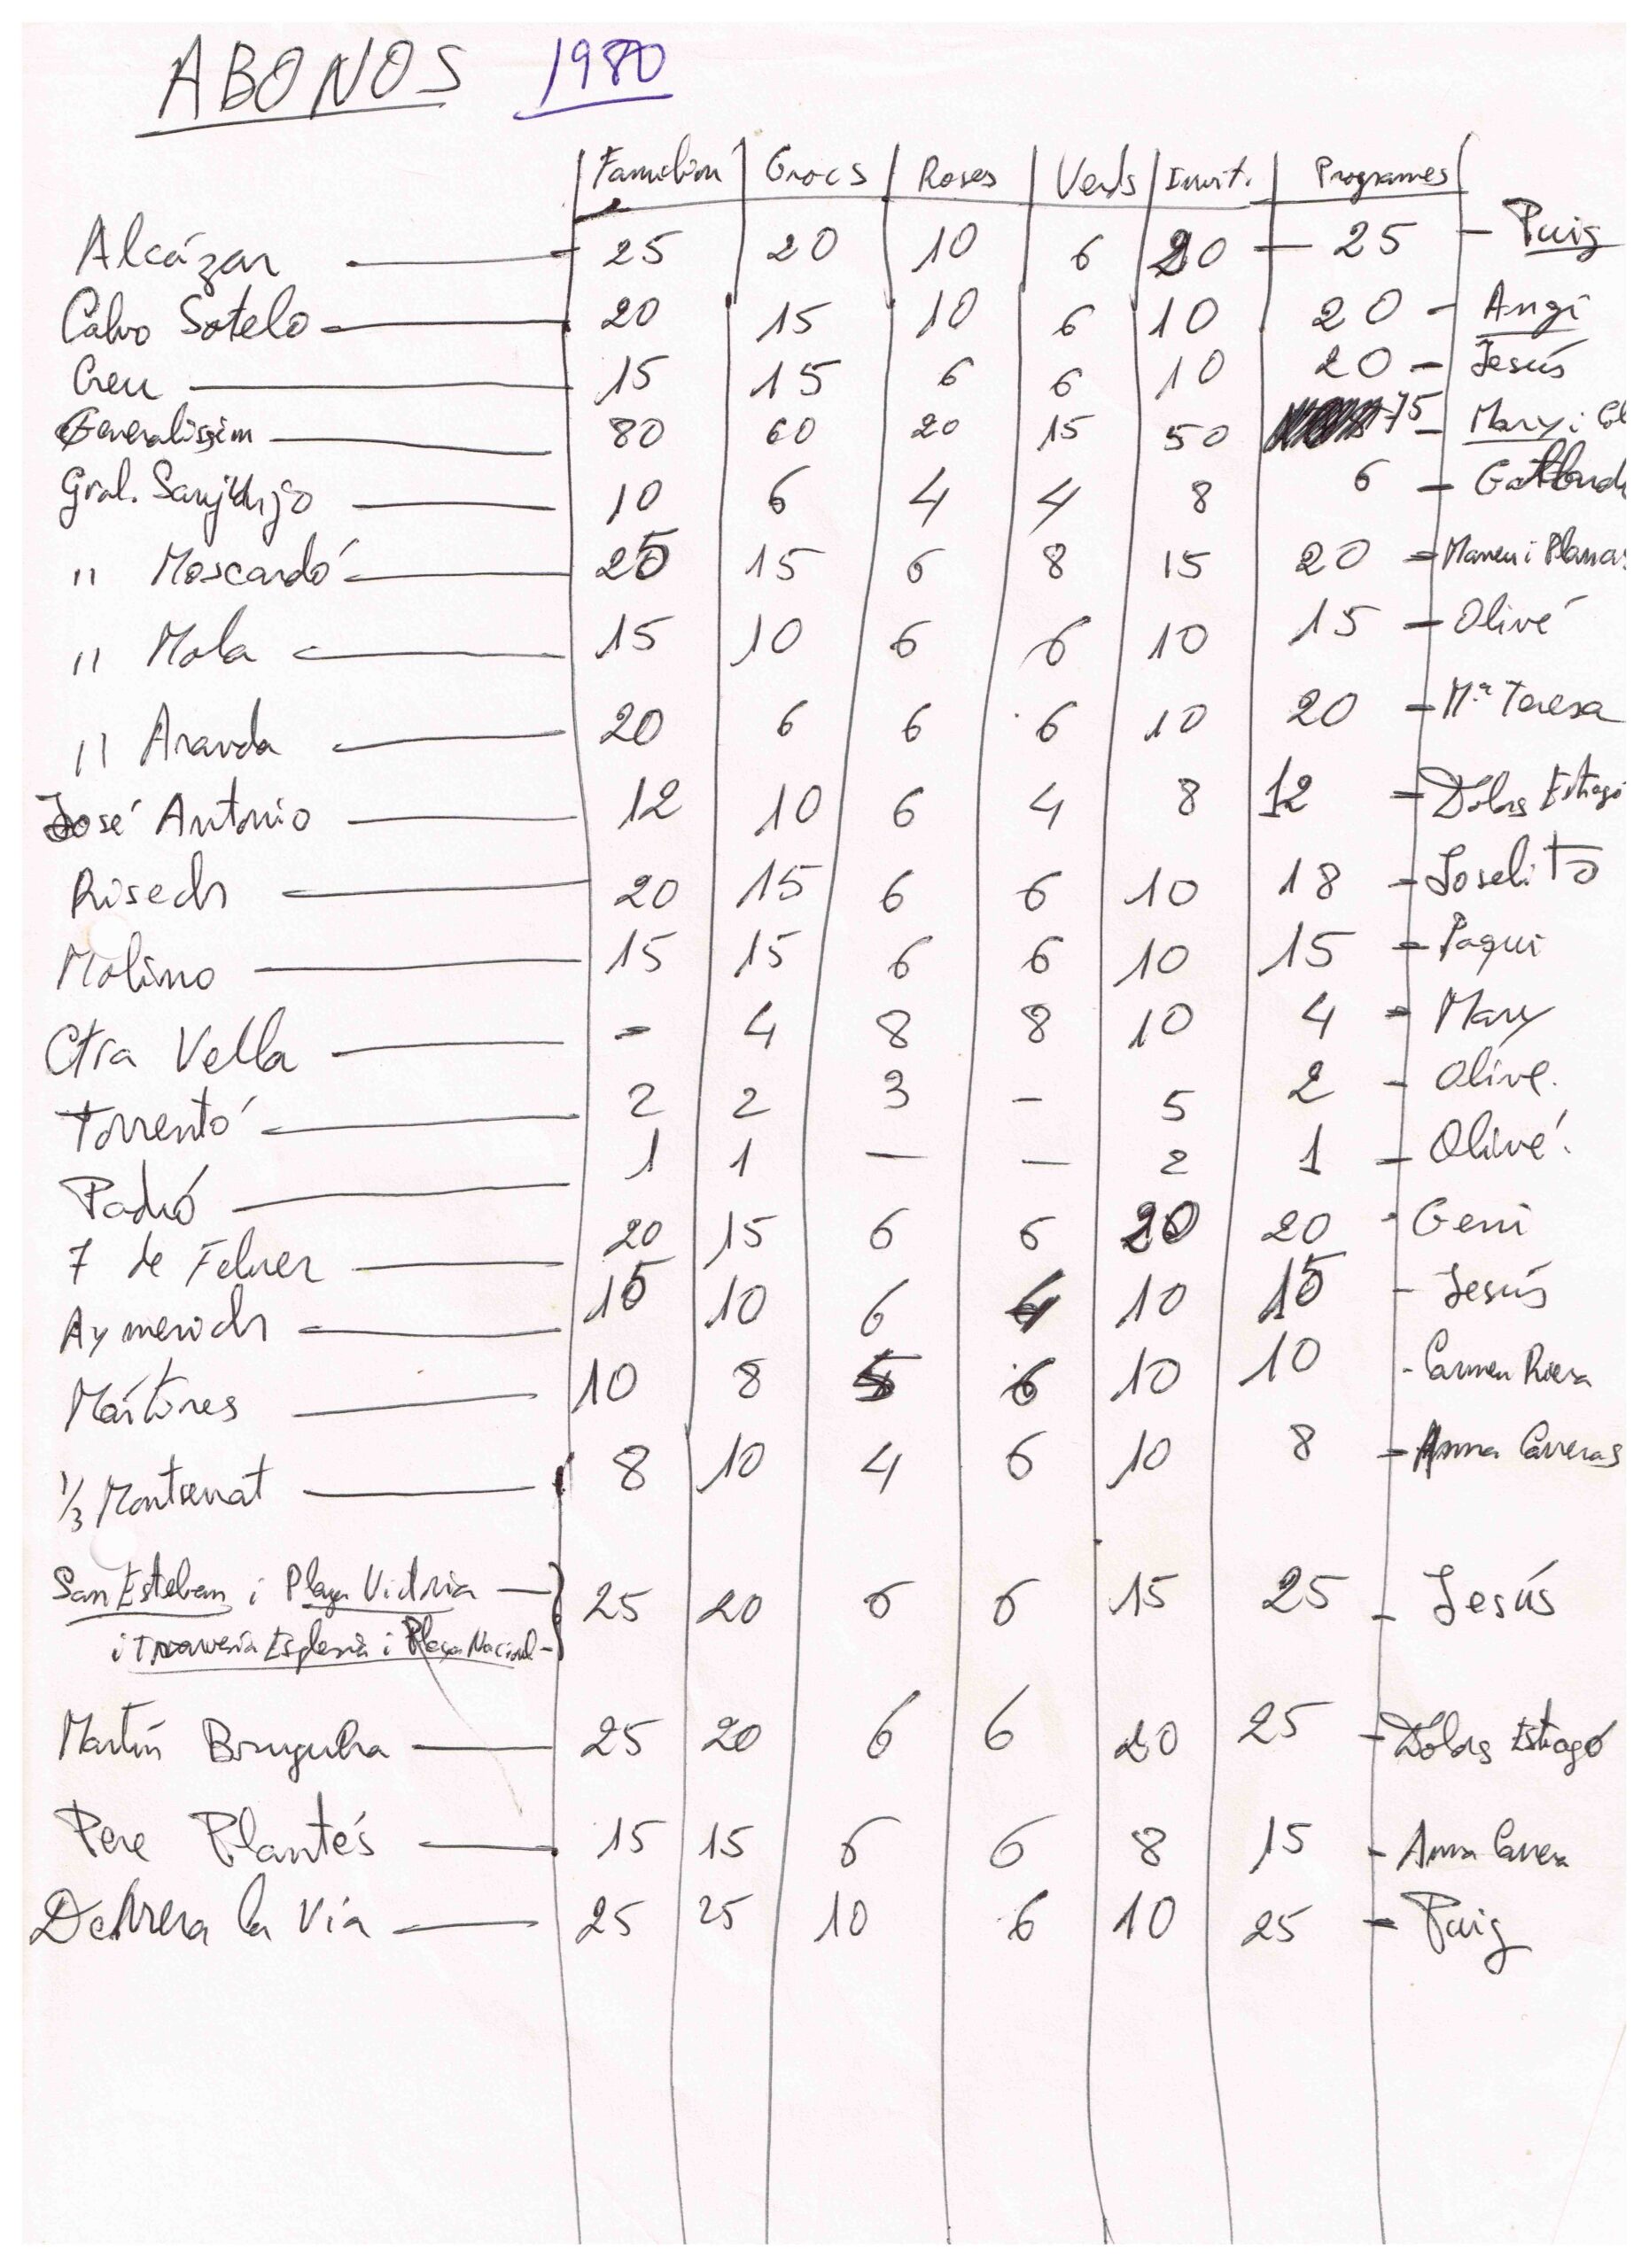 ABONOS 1980
Familiars Grocs Roses Verds Invit. Programes
Alcázar 25 20 10 6 20 25 - Puig
Calvo Sotelo 20 15 10 6 10 20 - Angi
Creu 15 15 6 6 10 20 - Jesús
Generalissim 80 60 20 15 50 75 - Mary i
Gral. Sanjurjo 10 6 4 4 8 6 -
" Moscardó 25 15 6 8 15 20 - i Planas
" Mola 15 10 6 6 10 15 - Olivé
" Aranda 20 6 6 6 10 20 - Mª Teresa
José Antonio 12 10 6 4 8 12 - Dolors Estragó
Risech 20 15 6 6 10 18 - Joselito
Molino 15 15 6 6 10 15 - Paqui
Ctra Vella - 4 8 8 10 4 - Mary
Torrentó 2 2 3 - 5 2 - Olivé.
Padró 1 1 - - 2 1 - Olivé.
7 de Febrer 20 15 6 6 20 20 - Geni
Aymerich 15 10 6 10 15 - Jesús
Mártires 10 8 5 6 10 10 - Carmen Riera
1/3 Montserrat 8 10 4 6 10 8 - Anna Carreras
San Esteban i Plaça Vidria 25 20 6 6 15 25 - Jesús
i Travesia Esglesia i Plaça Nacional -
Martín Bruguera 25 20 6 6 20 25 - Dolors Estragó
Pere Plantés 15 15 6 6 8 15 - Anna Carrera
Darrera la Via 25 25 10 6 10 25 - Puig